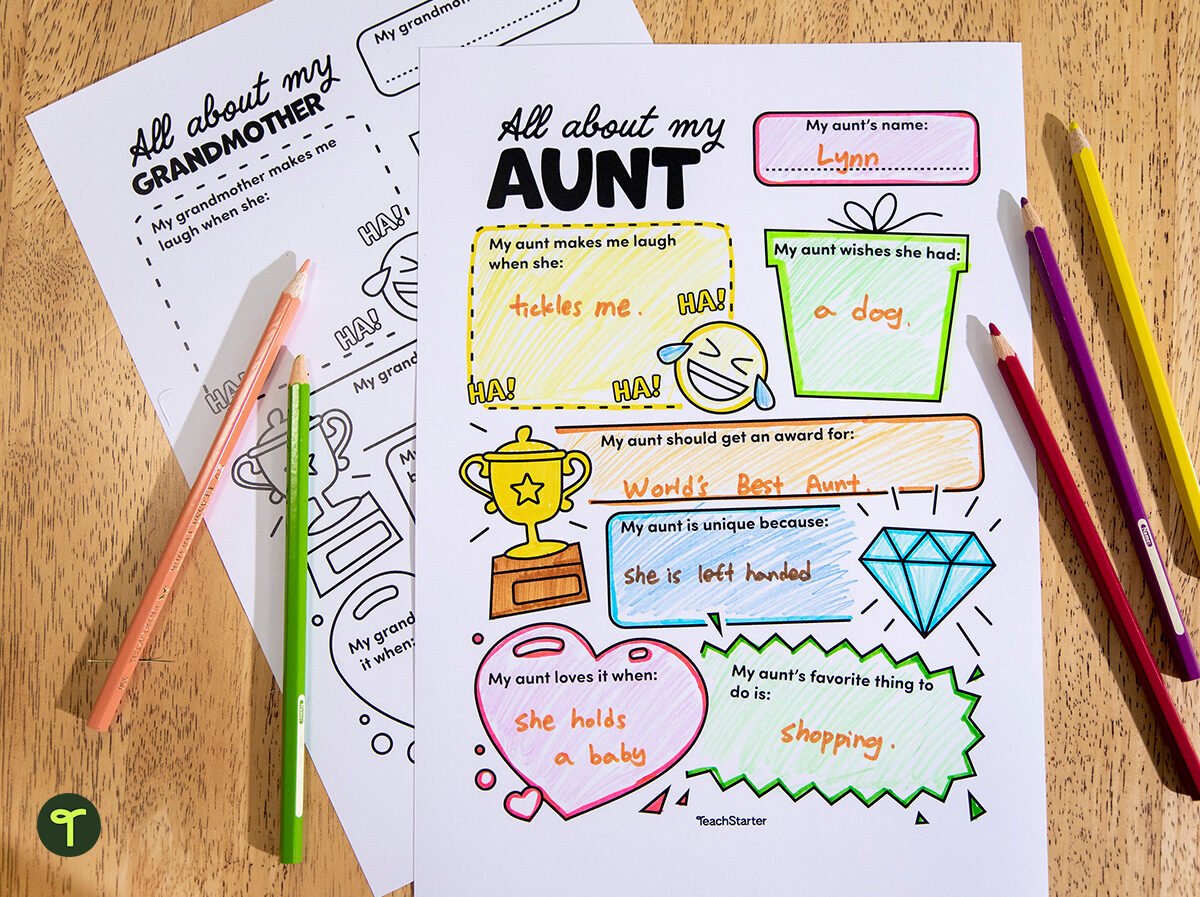 All about my
GRANDMOTHER
My grandmother makes me
laugh when she:
HA!
HA!
My
it when:
All about my
AUNT
My aunt's name:
Lynn
My aunt makes me laugh
when she:
tickles me.
HA!
HA!
HA!
My aunt wishes she had:
a dog.
My aunt should get an award for:
World's Best Aunt.
My aunt is unique because:
she is left handed
My aunt loves it when:
she holds
a baby
My aunt's favorite thing to
do is:
shopping.
TeachStarter